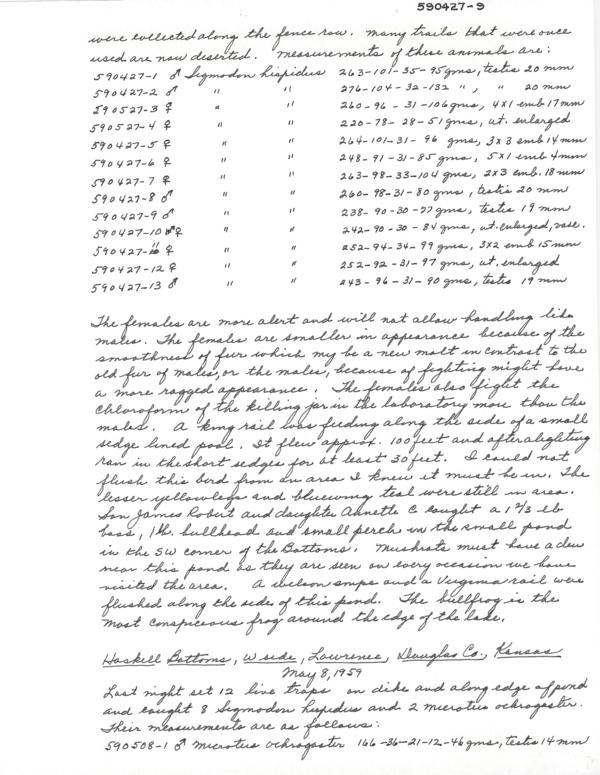 590427-9
were collected along the fence row. Many trails that were once
used are now deserted. Measurements of these animals are:
590427-1 ♂ Sigmodon hispidus 263-101-35-95 gms, testis 20 mm
590427-2 ♂ " " 276-104-32-132 ", " 20 mm
590527-3 ♀ " " 260-96-31-106 gms, 4x1 emb 17 mm
590527-4 ♀ " " 220-78-28-51 gms, ut. enlarged
590427-5 ♀ " " 264-101-31-96 gms, 3x3 emb 14 mm
590427-6 ♀ " " 248-91-31-85 gms, 5x1 emb 4mm
590427-7 ♀ " " 263-98-33-104 gms, 2x3 emb. 18 mm
590427-8 ♂ " " 260-98-31-80 gms, testis 20 mm
590427-9 ♂ " " 238-90-30-77 gms, testis 19 mm
590427-10 ♀ " " 242-90-30-84 gms, ut. enlarged, vasc.
590427-11 ♀ " " 252-94-34-99 gms, 3x2 emb 15 mm
590427-12 ♀ " " 252-92-31-97 gms, ut. enlarged
590427-13 ♂ " " 243-96-31-90 gms, testis 19 mm
The females are more alert and will not allow handling like
males. The females are smaller in appearance because of the
smoothness of fur which my be a new molt in contrast to the
old fur of males, or the males, because of fighting might have
a more ragged appearance. The females also fight the
chloroform of the killing jar in the laboratory more than the
males. A king rail was feeding along the side of a small
sedge lined pool. It flew approx. 100 feet and after alighting
ran in the short sedges for at least 30 feet. I could not
flush this bird from an area I knew it must be in. The
lesser yellowlegs and bluewing teal were still in area.
Son James Robert and daughter Annette C caught a 1 2/3 lb
bass, 1 lb. bullhead and small perch in the small pond
in the SW corner of the Bottoms. Muskrats must have a den
near this pond as they are seen on every occasion we have
visited the area. A wilson snipe and a Virginia rail were
flushed along the side of this pond. The bullfrog is the
most conspicuous frog around the edge of the lake.
Haskell Bottoms, W side, Lawrence, Douglas Co., Kansas
May 8, 1959
Last night set 12 live traps on dike and along edge of pond
and caught 8 Sigmodon hispidus and 2 microtus ochrogaster.
Their measurements are as follows:
590508-1 ♂ Microtus ochrogaster 166-36-21-12-46 gms, testis 14 mm